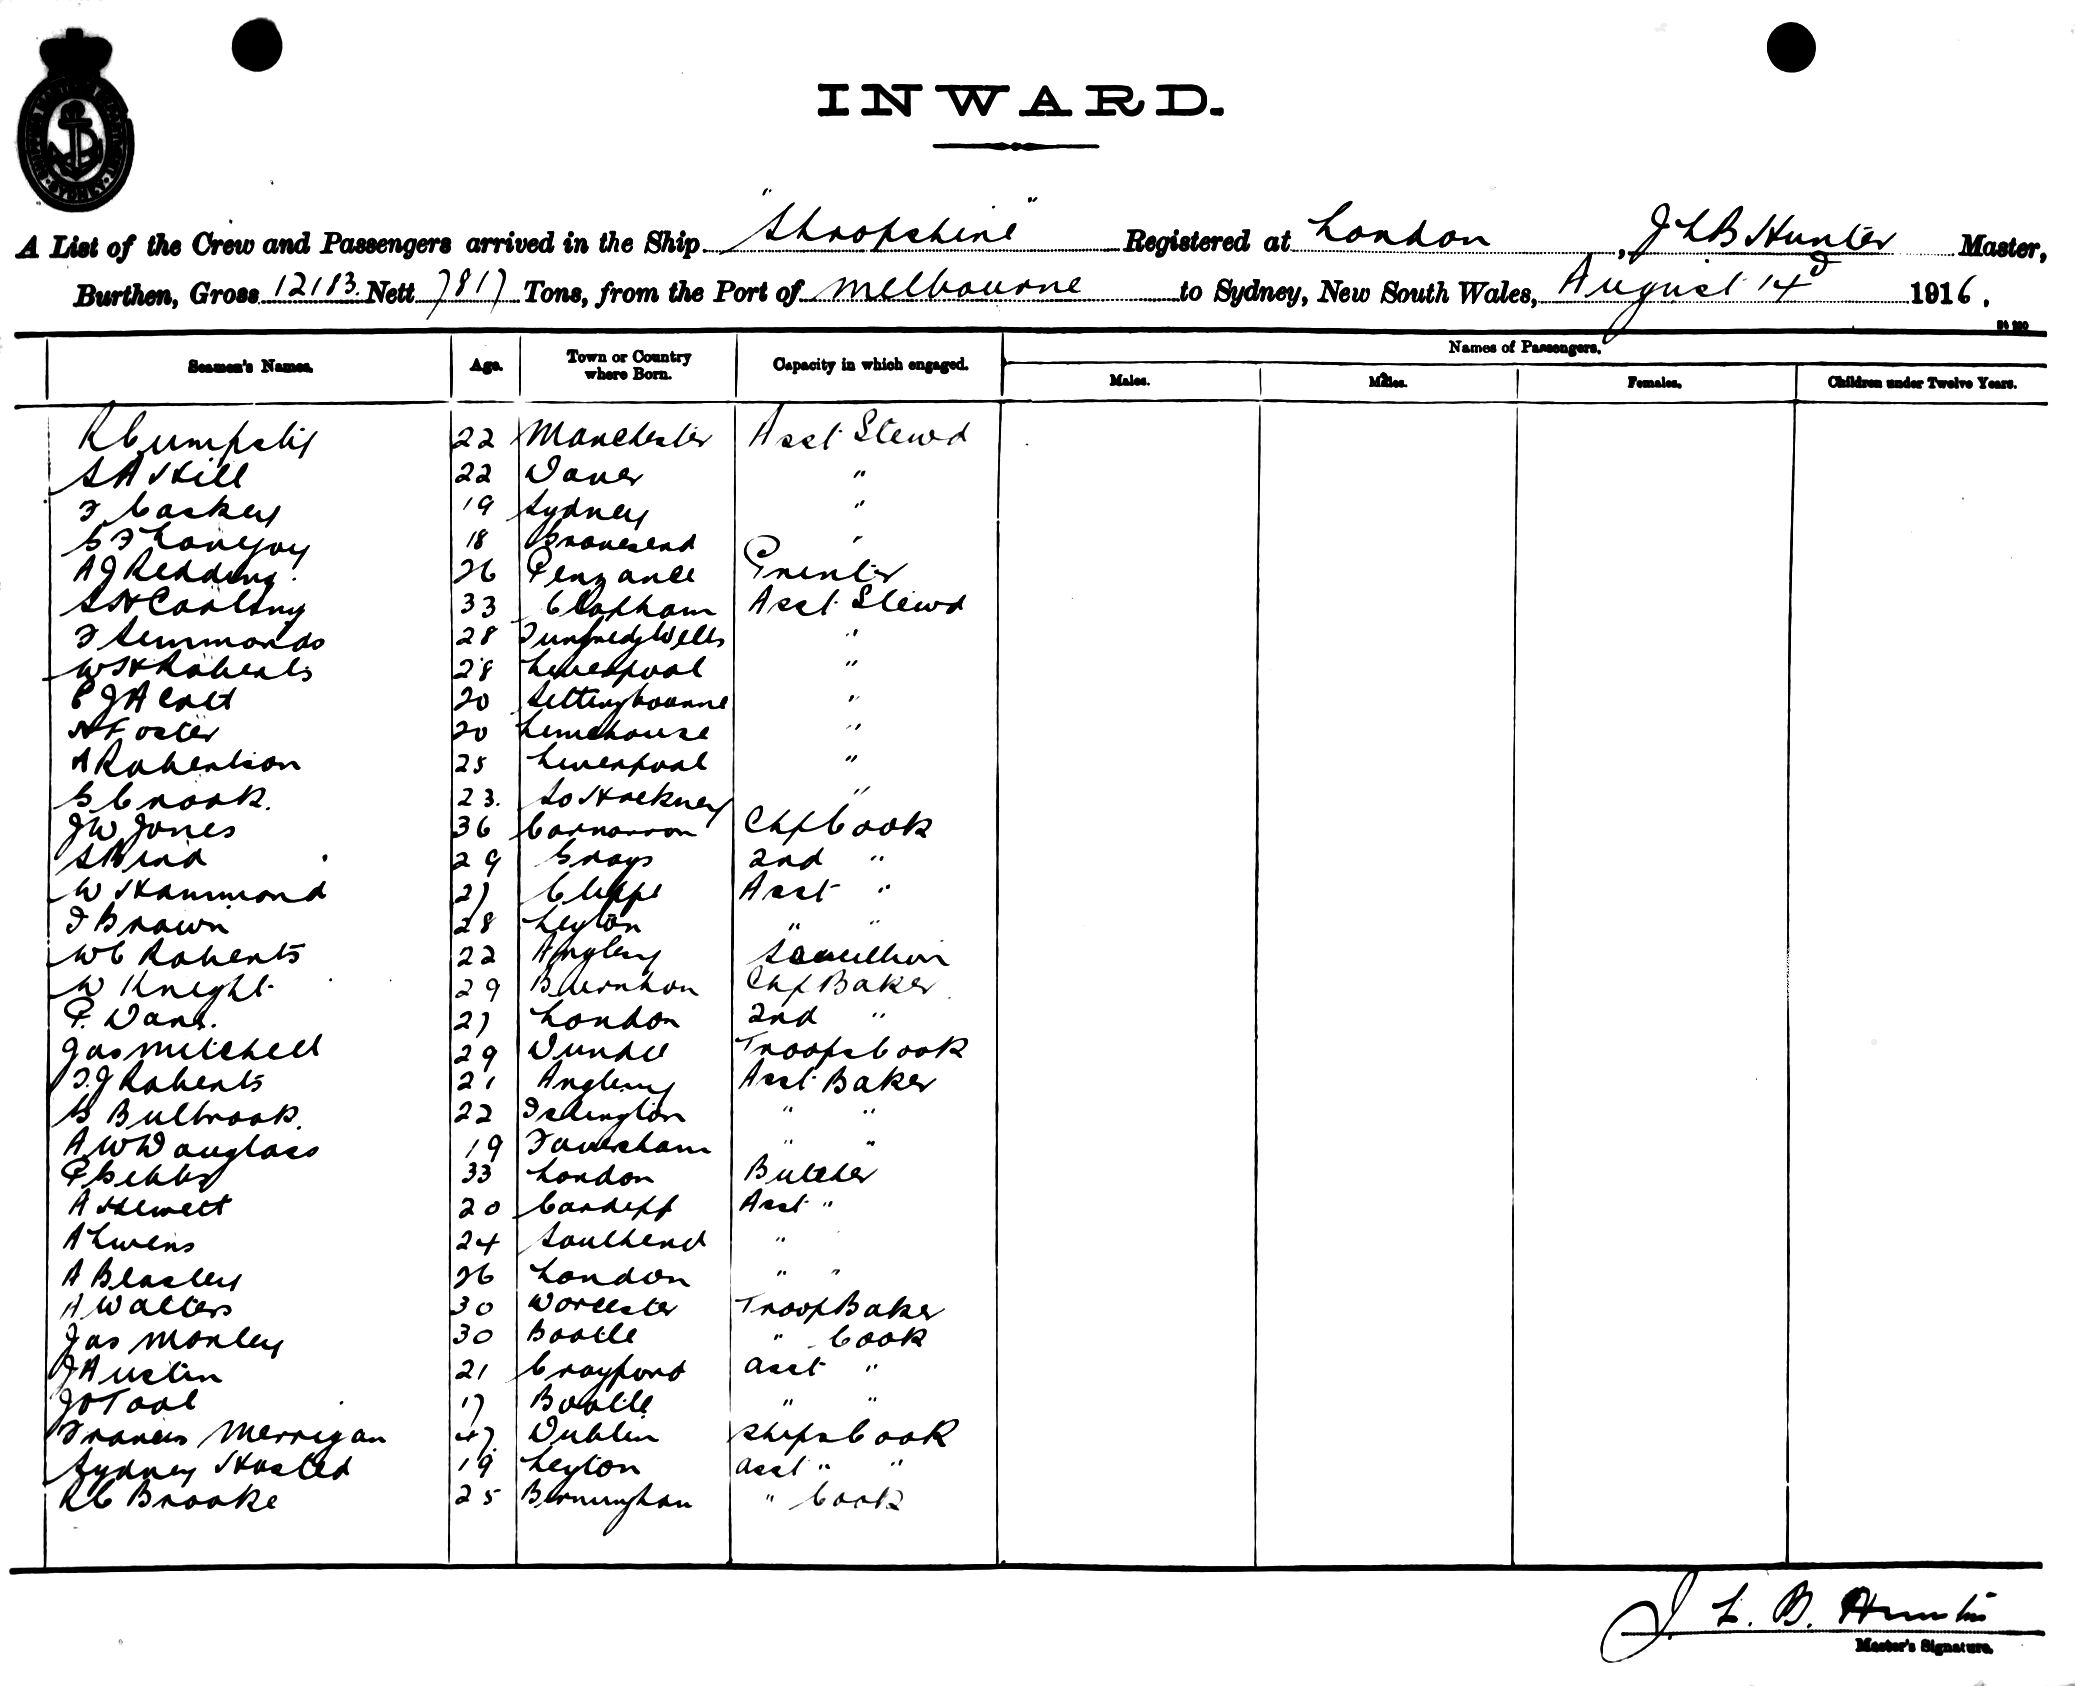 INWARD.
A List of the Crew and Passengers arrived in the Ship "Shropshire" Registered at London, J L B Hunter Master,
Burthen, Gross 12183. Nett 7817 Tons, from the Port of Melbourne to Sydney, New South Wales, August 14 1916.
Names of Passengers.
Seamen's Names. Age. Town or Country where Born. Capacity in which engaged. Males. Males. Females. Children under Twelve Years.
22 Manchester Asst Stewd
S A Hill 22 Dover "
F Caskey 19 Sydney "
G F Lovejoy 18 Gravesend "
A J Redding. 26 Penzance Printer
S H Cooling 33 Clapham Asst Stewd
F Simmonds 28 Wells "
W H Roberts 28 Liverpool "
C J A Colt 20 Sittingbourne "
H Foster 20 Limehouse "
A Robertson 25 Liverpool "
G Crook. 23. So Hackney "
J W Jones 36 Carnarvon Chf Cook
S Bird 29 Grays 2nd "
W Hammond 27 Cliffe Asst "
F Brown 28 Leyton " "
W C Roberts 22 Anglesey Scullion
W Knight 29 Burnham Chf Baker
P. 27 London 2nd "
Jas Mitchell 29 Dundee Troops Cook
T. J Roberts 21 Anglesey Asst Baker
G Bulbrook. 22 Islington " "
A W Douglass 19 Faversham " "
P Gibbs 33 London Butcher
A Hewett 20 Cardiff Asst "
A Livens 24 Southend "
A Beasley 26 London " "
A Walters 30 Worcester Troop Baker
Jas Morley 30 Bootle " Cook
J Austin 21 Crayford asst "
J O'Tool 17 Bootle " "
Francis Merrigan 47. Dublin Ships Cook
Sydney Husted 19 Leyton asst " "
R C Brooke 25 Birmingham " Cook
J. L. B. Hunter
Master's Signature.